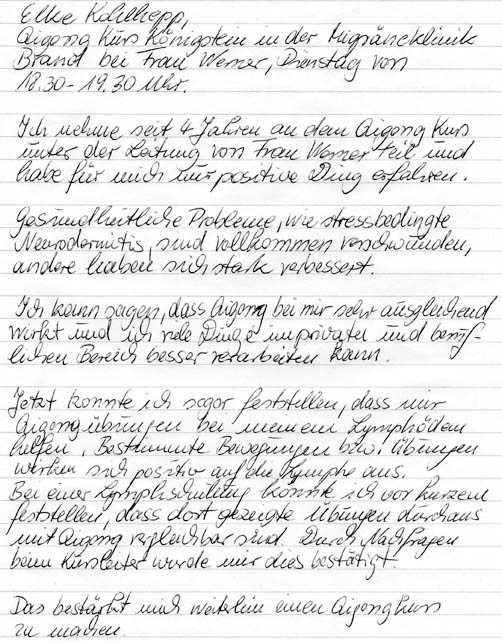 Elke Kohlhepp,
Qigong Kurs Königstein in der Migräneklinik
Brand bei Frau Werner, Dienstag von
18.30-19.30 Uhr.
Ich nehme seit 4 Jahren an dem Qigong Kurs
unter der Leitung von Frau Werner teil und
habe für mich nur positive Ding erfahren.
Gesundheitliche Probleme, wie stressbedingte
Neurodermitis, sind vollkommen verschwunden,
andere haben sich stark verbessert.
Ich kann sagen, dass Qigong bei mir sehr ausgleichend
wirkt und ich viele Dinge im privaten und beruf-
lichen Bereich besser verarbeiten kann.
Jetzt konnte ich sogar feststellen, dass mir
Qigongübungen bei meinem Lymphödem
helfen. Bestimmte Bewegungen bzw. Übungen
wirken sich positiv auf die Lymphe aus.
Bei einer Lymphschulung konnte ich vor kurzem
feststellen, dass dort gezeigte Übungen durchaus
mit Qigong vergleichbar sind. Durch Nachfragen
beim Kursleiter wurde mir dies bestätigt.
Das bestärkt mich weiterhin einen Qigongkurs
zu machen.